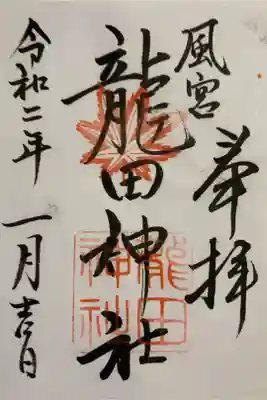 風宮
奉拝
龍田神社
龍田
神社
令和二年
一月吉日